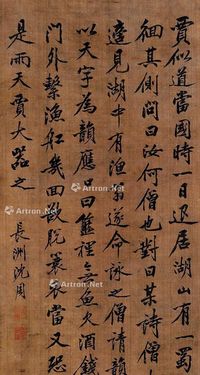 賈似道當國時一日退居湖山有一蜀
徊其側問曰汝何僧也對曰某詩僧
遙見湖中有漁翁遂命詠之僧請韻
以天字為韻應曰籃裡無魚欠酒錢
門外繫漁船幾回欲脫蓑衣當又恐
是雨天賈大器之
長洲沈周
Artron.Net
Artron.Net
Artron.Net
Artron.Net